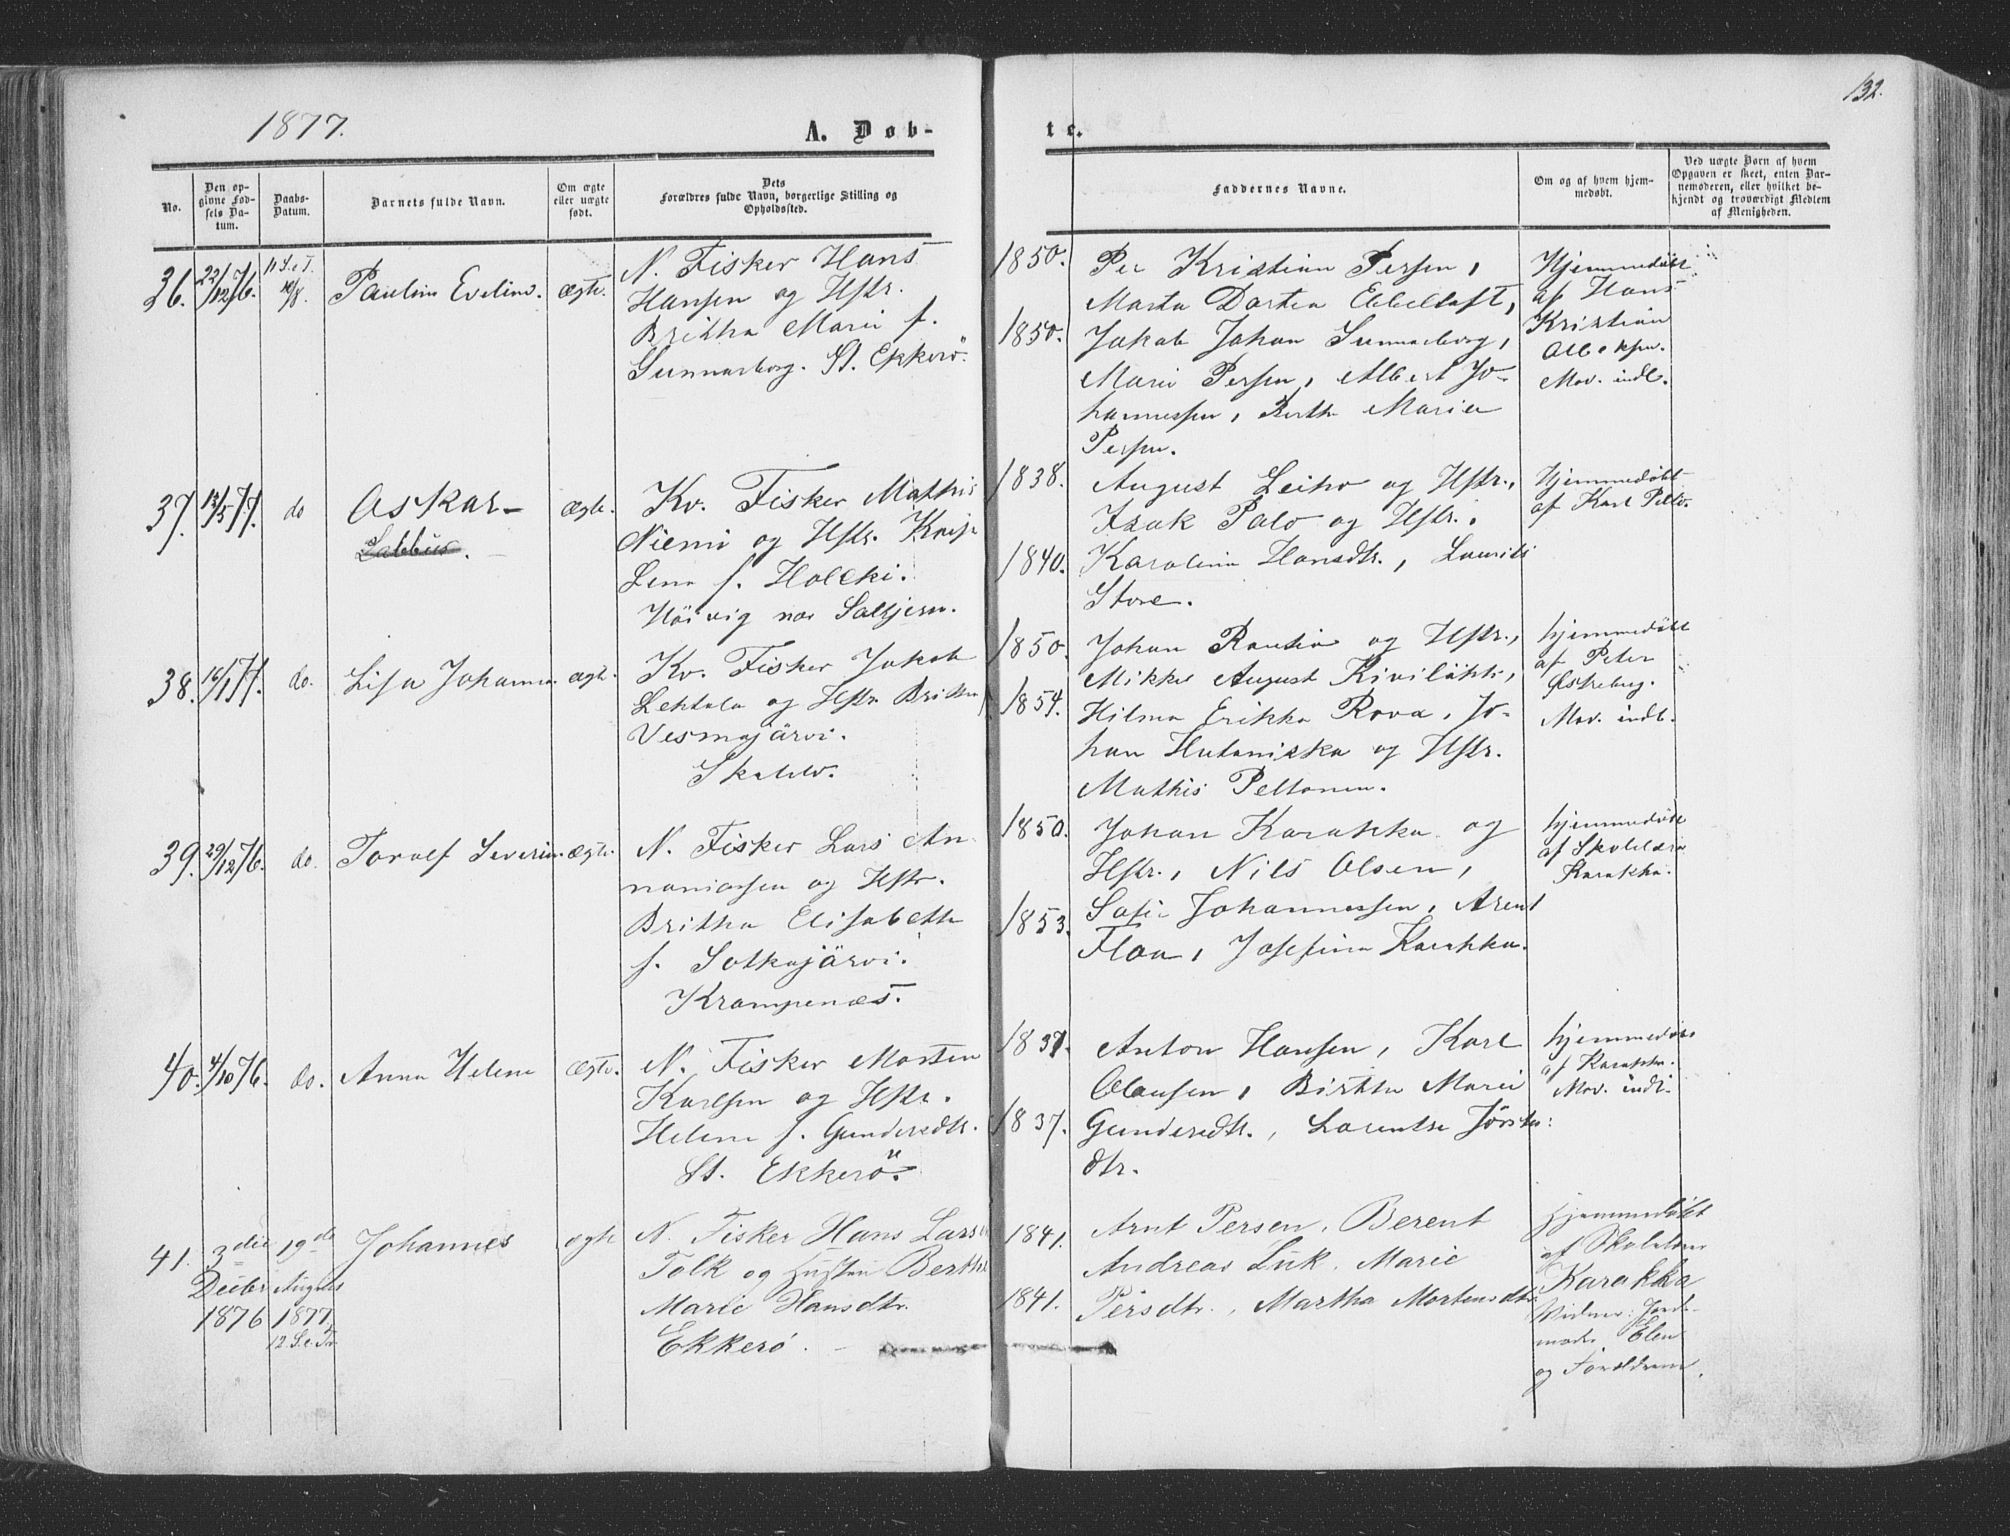 1877.
A. Døb-
te.
132.
No.
Den op-
givne Fød-
sels Da-
tum.
Daabs-
Datum.
Barnets fulde Navn.
Om ægte
eller uægte
født.
Dets
Forældres fulde Navn, borgerlige Stilling og
Opholdssted.
Faddernes Navne.
Om og af hvem hjem-
medøbt.
Ved uægte Børn af hvem
Opgaven er skeet, enten Bar-
nemoderen, eller hvilket be-
kjendt og troværdigt Medlem
af Menigheden.
36.
22/12 76.
11 S. e. T.
12/8.
Pauline Eveline.
ægte.
N. Fisker Hans
Hansen og Hstr.
Britha Marie f.
Sunnarborg. St. Ekkerö.
1850.
1850.
Per Kristian Persen,
Marta Dortea Ebbeltoft,
Jakob Johan Sunnarborg,
Marie Persen, Albert Jo-
hannessen, Berth Marie
Persen.
Hjemmedöbt
af Hans
Kristian
Mov. indl.
37.
13/5 77.
do
Askar
Labbus.
ægte.
Kv. Fisker Mathis
Niemi og Hstr. Kaisa
Lena f. Holcki.
nær Saltjern.
1838.
1840.
August Leino og Hstr.,
Isak Palo og Hstr.
Karolina Hansdtr., Laurits
Store.
Hjemmedöbt
af Karl Pelto.
38.
16/1 77.
do.
Lisa Johanna.
ægte.
Kv. Fisker Jakob
Lehtola og Hstr. Britha
Vesmajärvi.
Skatelv.
1850.
1854.
Johan Rantio og Hstr.,
Mikkel August Kivilähti,
Hilma Erikka Rova, Jo-
han Hutaniska og Hstr.
Mathis Peltonen.
hjemmedöbt
af Peter
Østreberg.
Mov. indl.
39.
29/12 76.
do.
Toralf Severin
ægte.
N. Fisker Lars An-
naniassen og Hstr.
Britha Elisabeth
f. Sotkajärvi.
Krampenæs.
1850.
1853.
Johan Karakka og
Hstr., Nils Olsen,
Sofie Johannessen, Arent
Floa, Josefine Karakka.
hjemmedöbt
af Skolelærer
Karakka.
40.
4/10 76.
do.
Anna Helene
ægte.
N. Fisker Morten
Karlsen og Hstr.
Helene f. Gundersdtr.
St. Ekkerö.
1837.
1837.
Anton Hansen, Karl
Olausen, Birthe Marie
Gundersdtr., Lorentse Jörgens:
dtr.
hjemmedöbt
af Karakka.
Mov. indl.
41.
3die
Decbr
1876
19de
Augusts
1877
12 S. e. Tr.
Johannes
ægte
N. Fisker Hans Larsen
Tolk og Hustru Berthe
Marie Hansdtr.
Ekkerø.
1841.
1841.
Arnt Persen, Berent
Andreas Luk, Marie
Persdtr., Martha Mortensdtr
Hjemmedöbt
af Skolelærer
Karakka
Vidner: Jord-
moder Elen
og Forældrene.